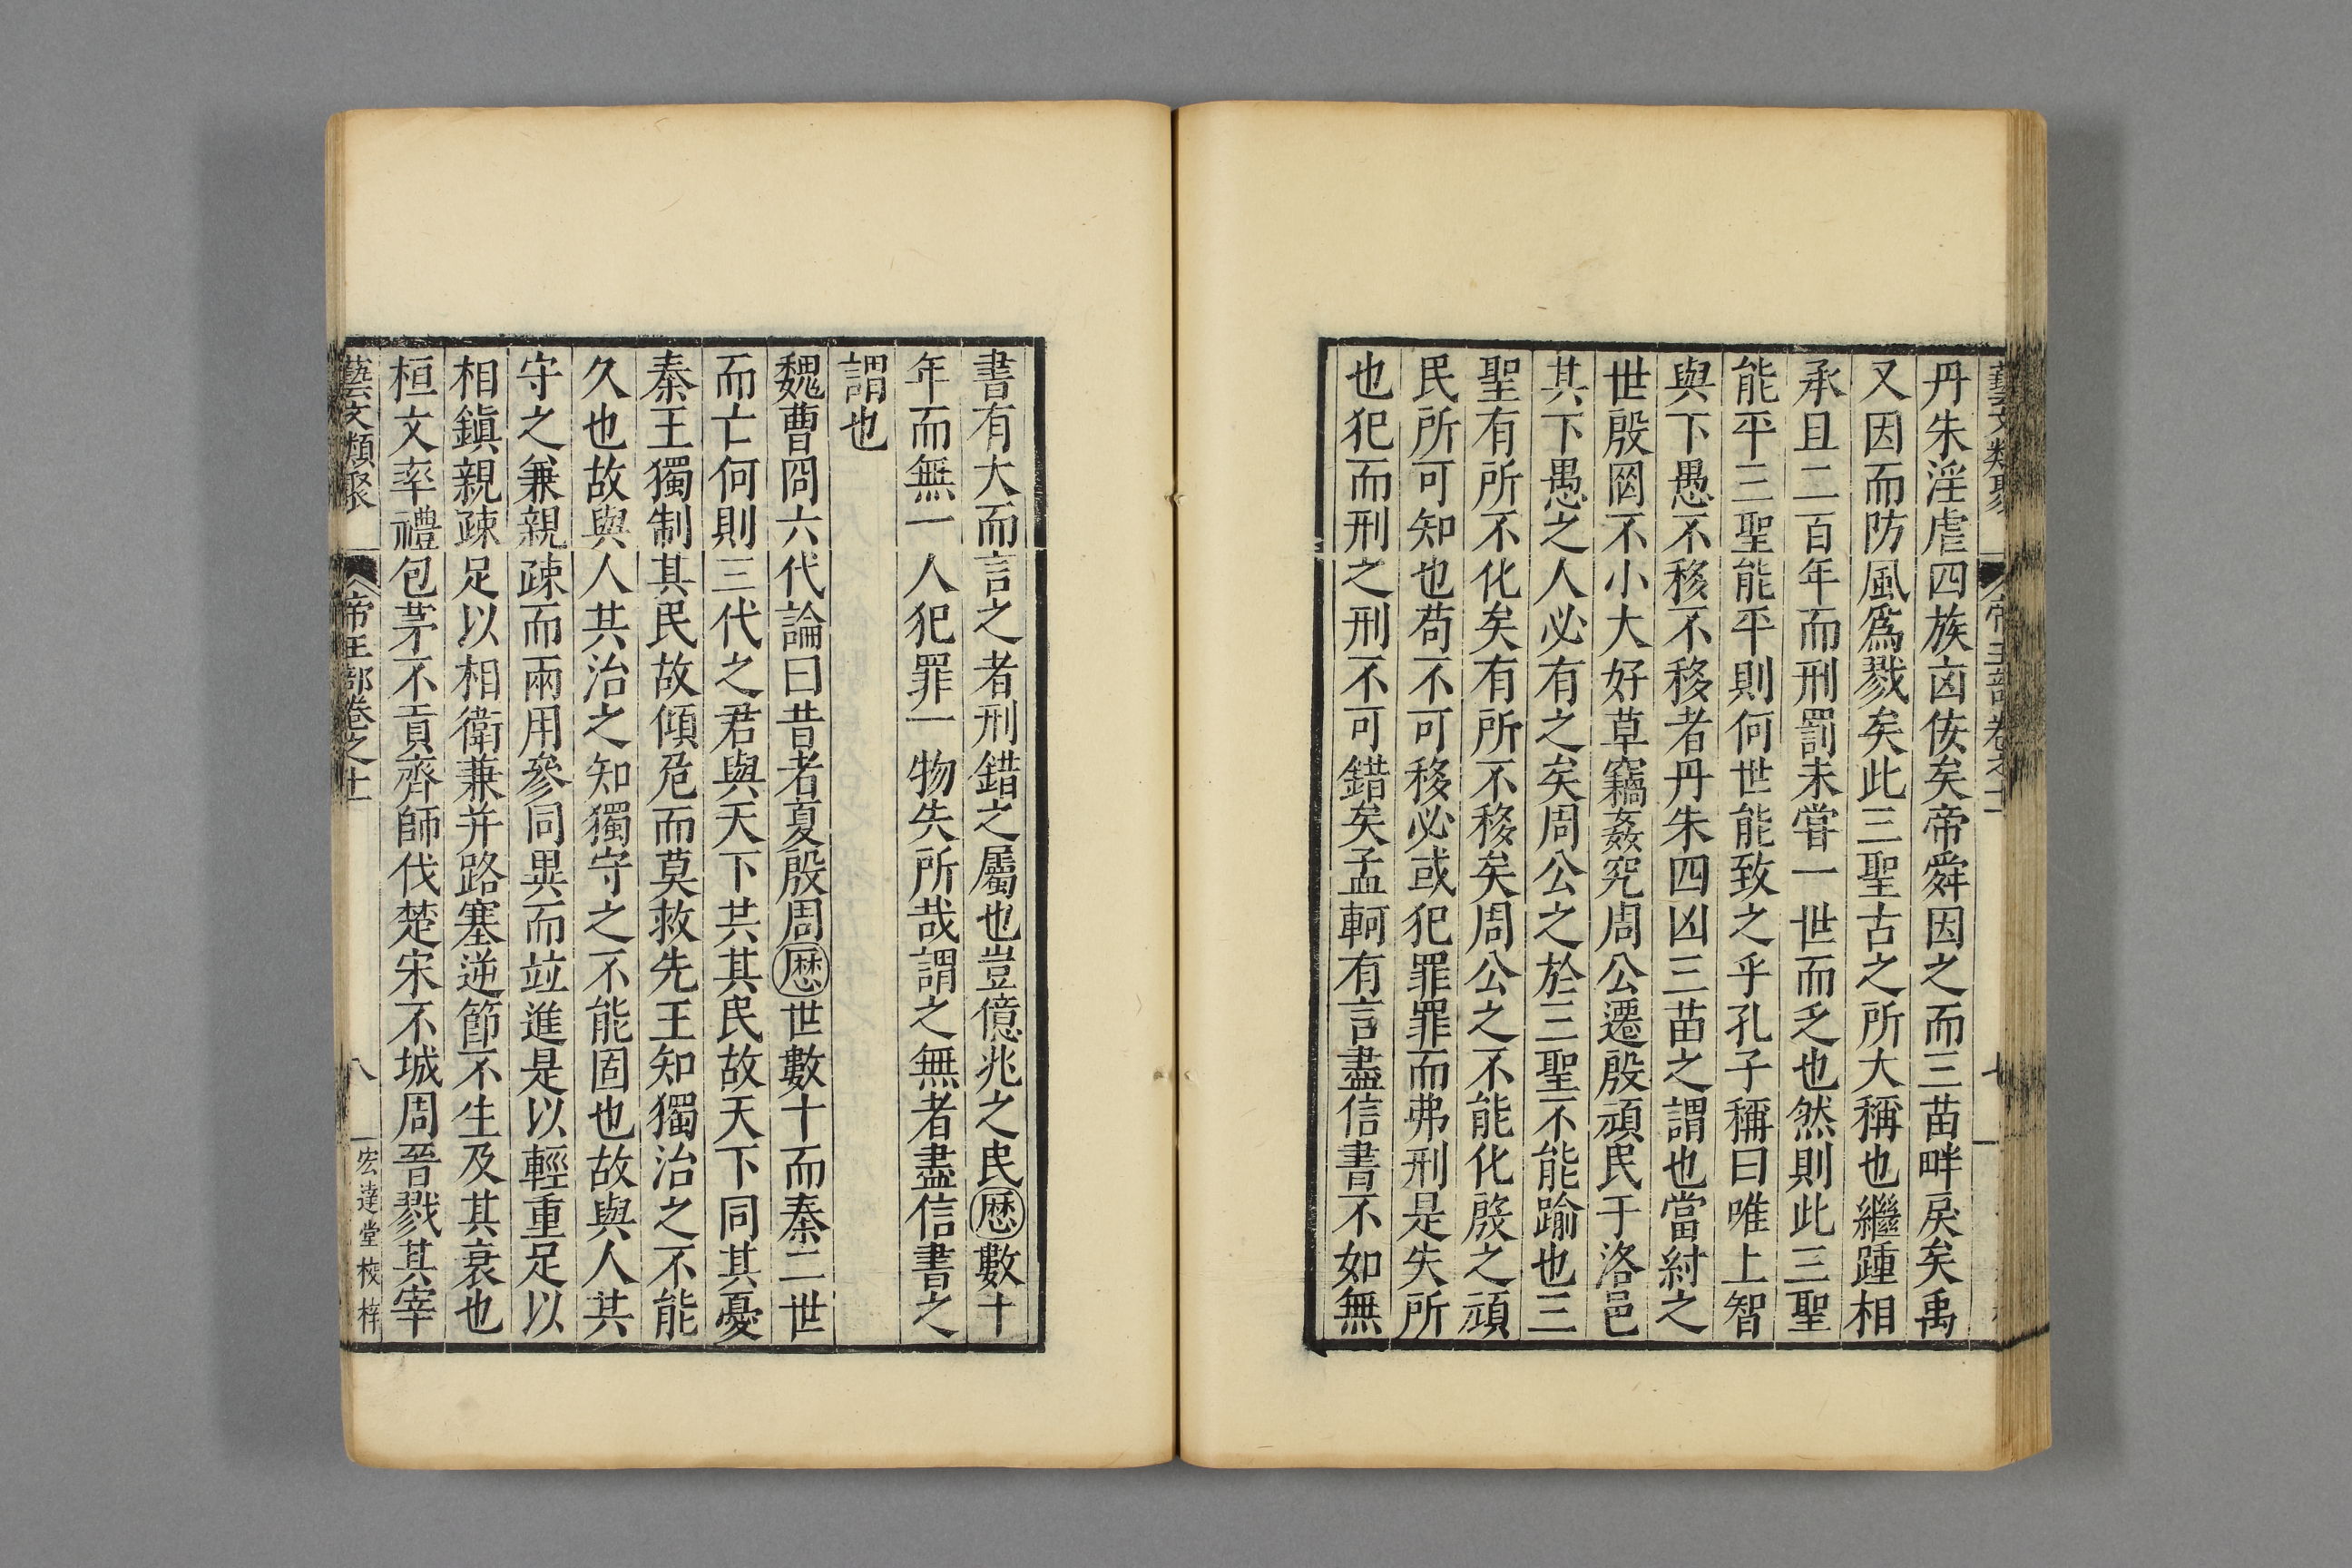 藝文類聚 帝王部卷之十
丹朱淫虐四族凶佞矣帝舜因之而三苗畔戾矣禹
又因而防風爲戮矣此三聖古之所大稱也繼踵相
承且二百年而刑罰未嘗一世而乏也然則此三聖
能平三聖能平則何世能致之乎孔子稱曰唯上智
與下愚不移不移者丹朱四凶三苗之謂也當紂之
世殷罔不小大好草竊姦宄周公遷殷頑民于洛邑
其下愚之人必有之矣周公之於三聖不能踰也三
聖有所不化矣有所不移矣周公之不能化殷之頑
民所可知也苟不可移必或犯罪罪而弗刑是失所
也犯而刑之刑不可錯矣孟軻有言盡信書不如無
書有大而言之者刑錯之屬也豈億兆之民歷數十
年而無一人犯罪一物失所哉謂之無者盡信書之
謂也
魏曹冏六代論曰昔者夏殷周歷世數十而秦二世
而亡何則三代之君與天下共其民故天下同其憂
秦王獨制其民故傾危而莫救先王知獨治之不能
久也故與人共治之知獨守之不能固也故與人共
守之兼親疎而兩用參同異而竝進是以輕重足以
相鎮親疎足以相衛兼并路塞逆節不生及其衰也
桓文率禮包茅不貢齊師伐楚宋不城周晉戮其宰
藝文類聚 帝王部卷之十一 八 宏達堂校梓